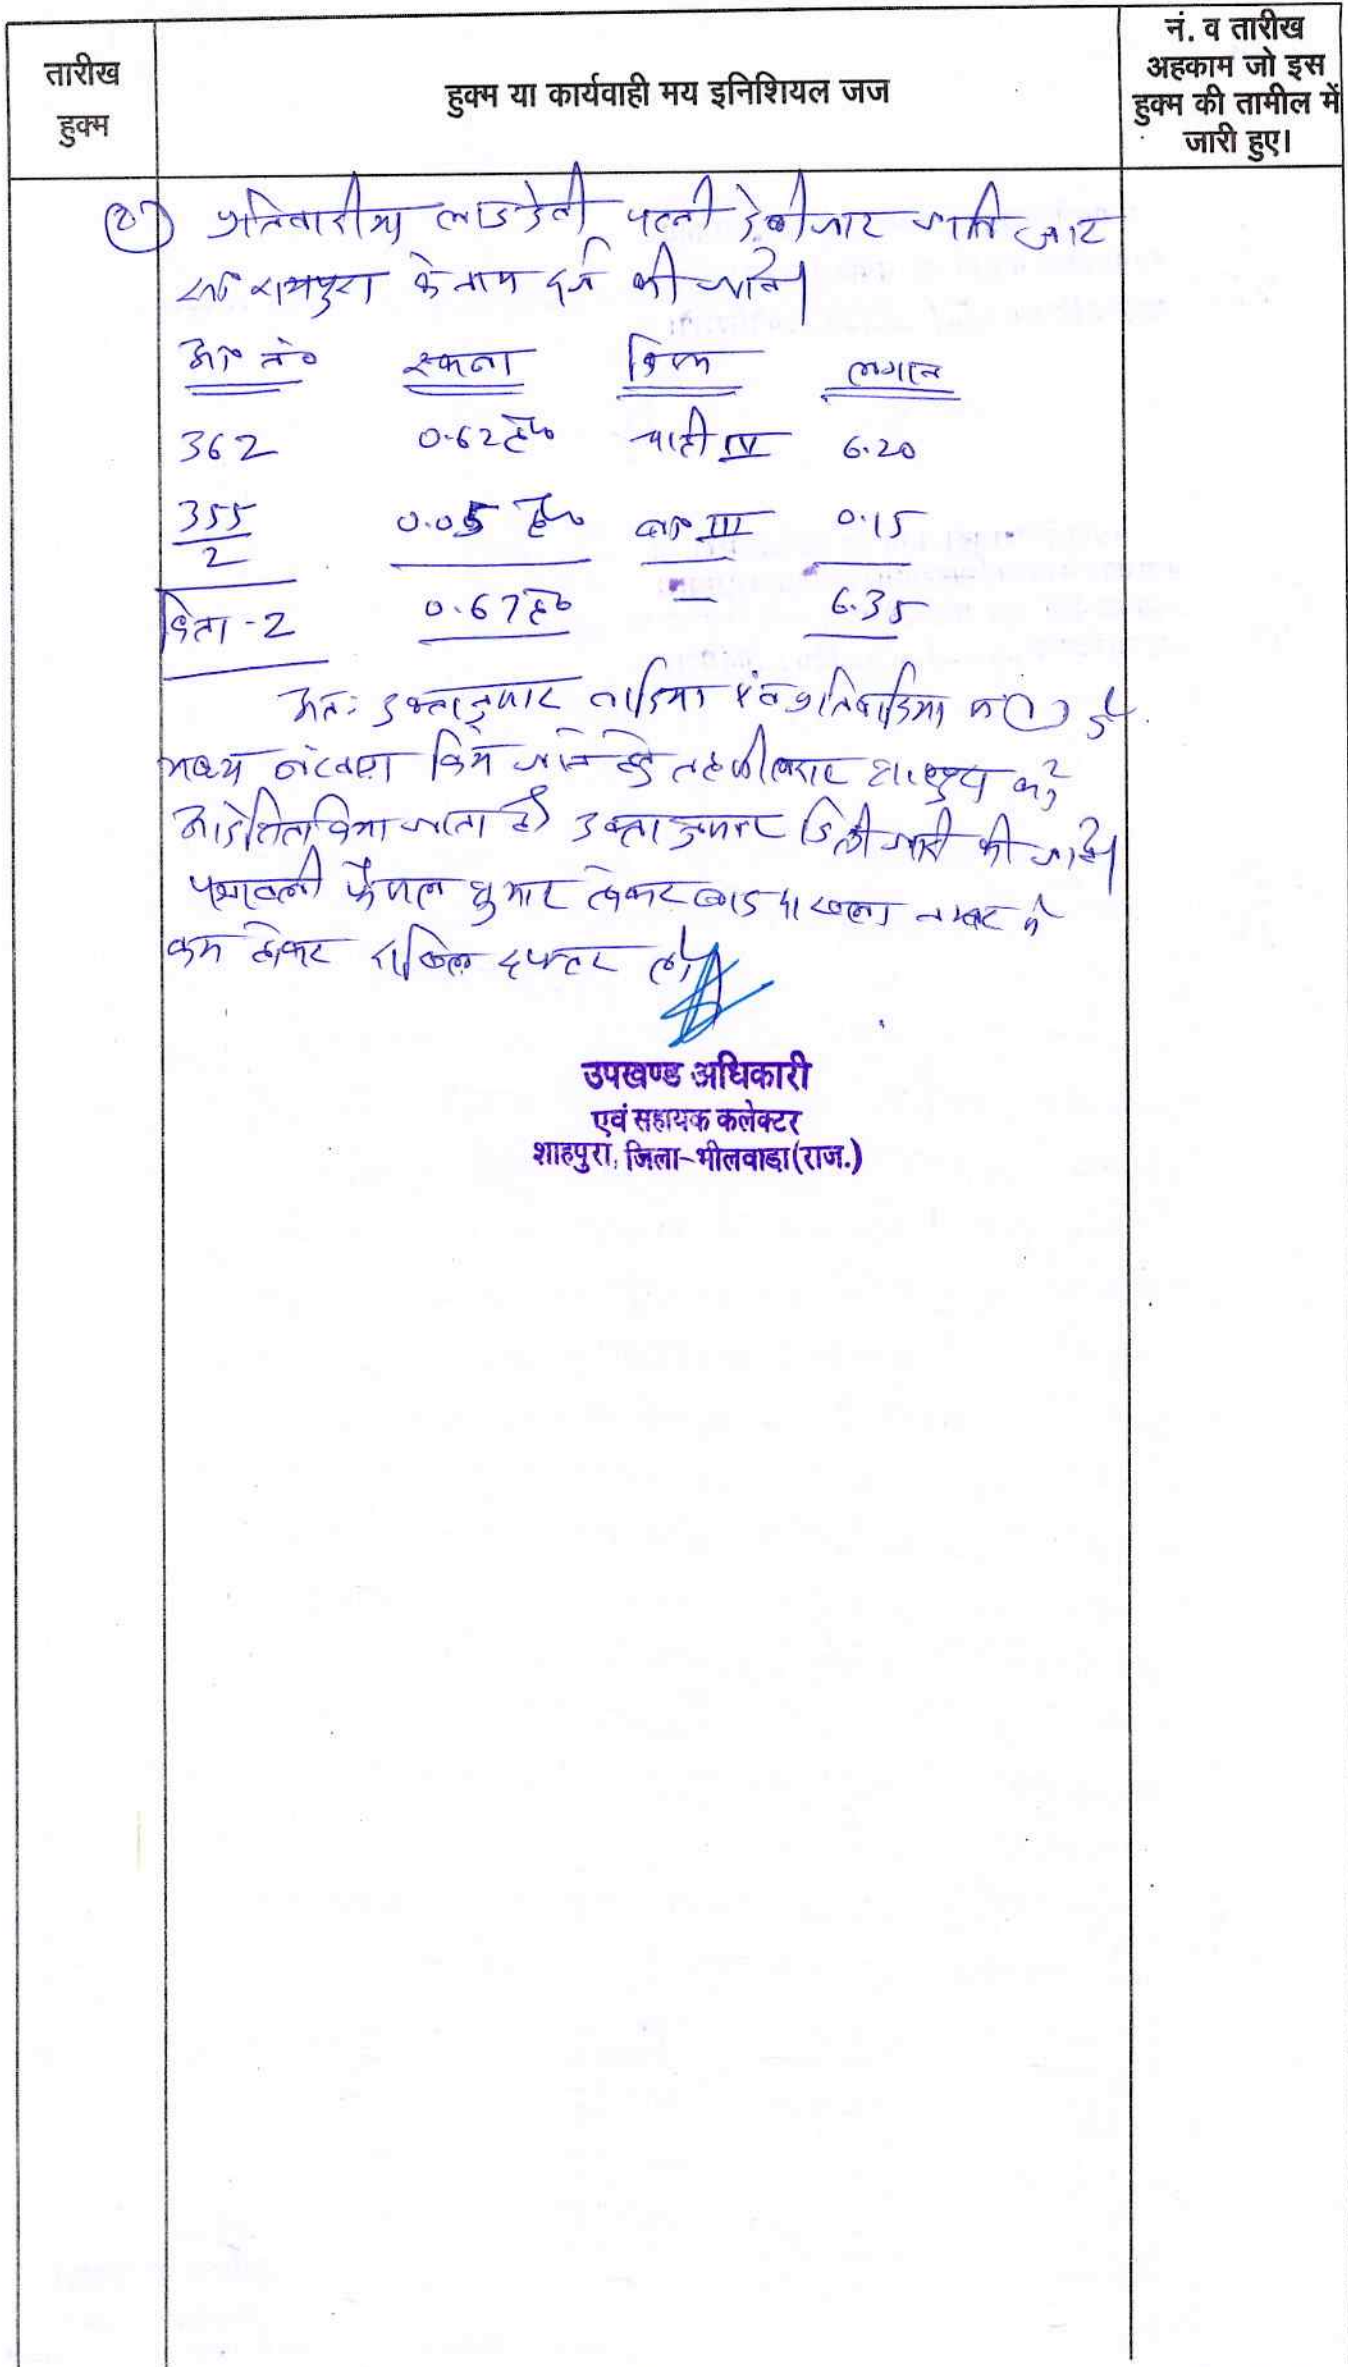 तारीख
हुक्म
हुक्म या कार्यवाही मय इनिशियल जज
नं. व तारीख
अहकाम जो इस
हुक्म की तामील में
जारी हुए।
(2) प्रतिवादीया लाडदेवी पत्नी देबीलाल जाति जाट
रामपुरा के नाम दर्ज की जावे।
आ० नं० रकबा किस्म लगान
362 0.62 है० चाही IV 6.20
355/2 0.05 है० बा० III 0.15
किता-2 0.67 है० — 6.35
अतः उक्तानुसार वादिया एवं प्रतिवादिया के
मध्य बंटवारा किये जाने हेतु तहसीलदार शाहपुरा को
आदेशित किया जाता है। उक्तानुसार डिक्री जारी की जावे।
पत्रावली फैसल शुमार होकर बाद दाखला नम्बर से
कम होकर दाखिल दफ्तर हो।
उपखण्ड अधिकारी
एवं सहायक कलेक्टर
शाहपुरा, जिला-भीलवाडा (राज.)